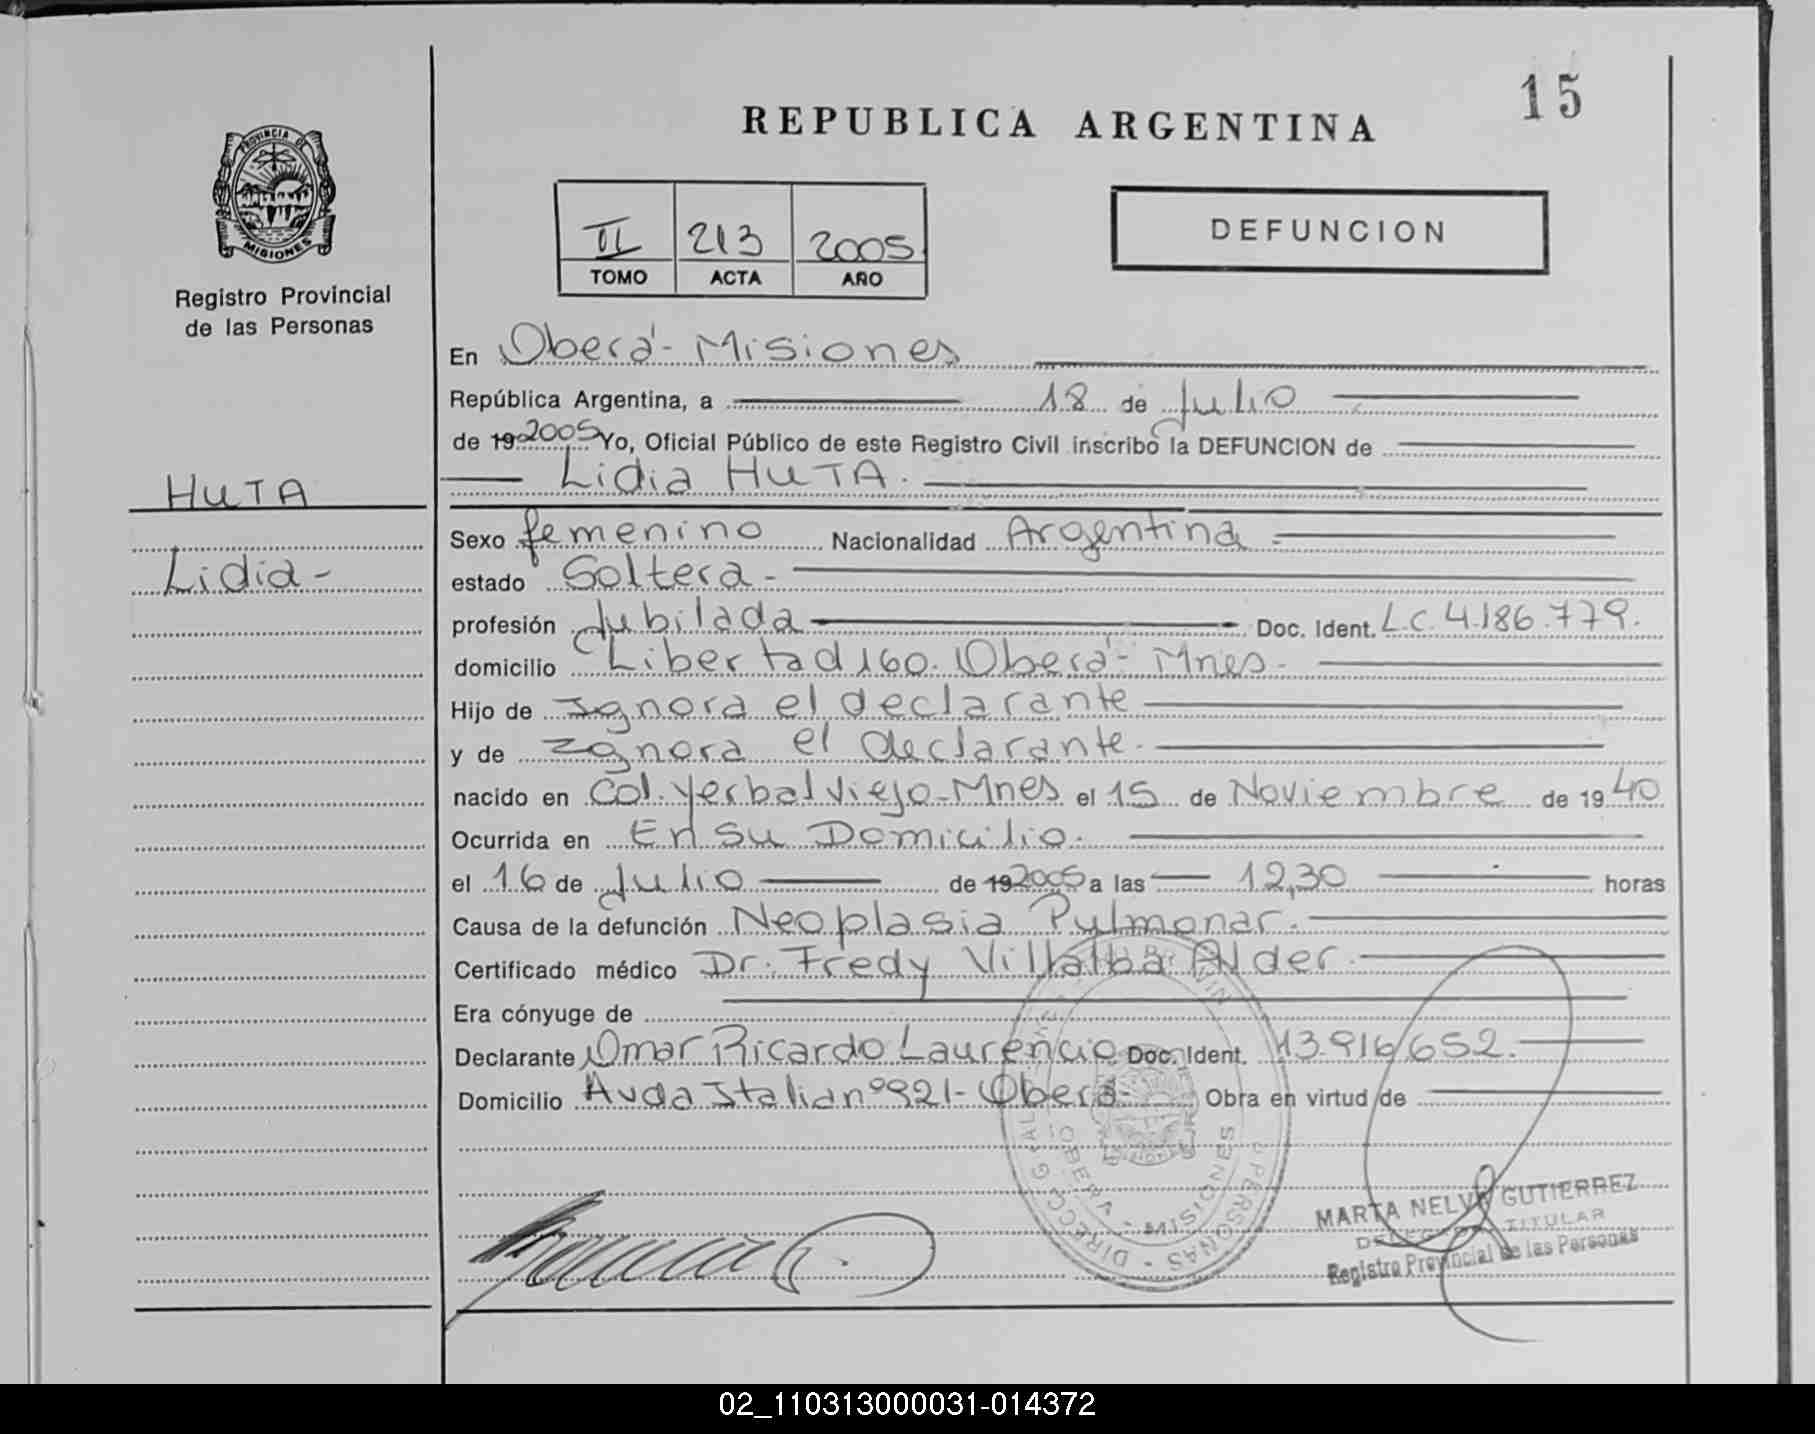 15
REPUBLICA ARGENTINA
PROVINCIA DE
MISIONES
Registro Provincial
de las Personas
II 213 2005
TOMO ACTA AÑO
DEFUNCION
En Oberá - Misiones
República Argentina, a 18 de Julio
de 19 2005 Yo, Oficial Público de este Registro Civil inscribo la DEFUNCION de
Lidia HUTA.
HUTA
Lidia -
Sexo femenino Nacionalidad Argentina -
estado Soltera -
profesión Jubilada Doc. Ident. L.C. 4.186.779.
domicilio Libertad 160. Oberá - Mnes -
Hijo de Ignora el declarante
y de Ignora el declarante.
nacido en Col. Yerbal Viejo - Mnes el 15 de Noviembre de 19 40
Ocurrida en En su Domicilio.
el 16 de Julio de 19 2005 a las 12,30 horas
Causa de la defunción Neoplasia Pulmonar.
Certificado médico Dr. Fredy Villalba Alder.
Era cónyuge de
Declarante Omar Ricardo Laurencio Doc. Ident. 13.916.652.
Domicilio Avda Italia nº 921 - Oberá - Obra en virtud de
OBERA - MISIONES
PERSONAS
MARTA NELVA GUTIERREZ
TITULAR
Registro Provincial de las Personas
02_110313000031-014372